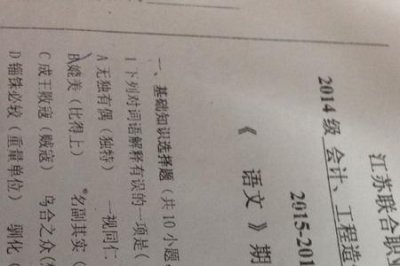 江苏联合职业
2015-201
2014级 会计、工程造
《 语文 》期
一、基础知识选择题（共10小题
1下列对词语解释有误的一项是（
A无独有偶（独特） 一视同仁
B媲美（比得上） *名副其实（
C成王败寇（贼寇） 乌合之众（
D锱铢必较（重量单位） 驯化（